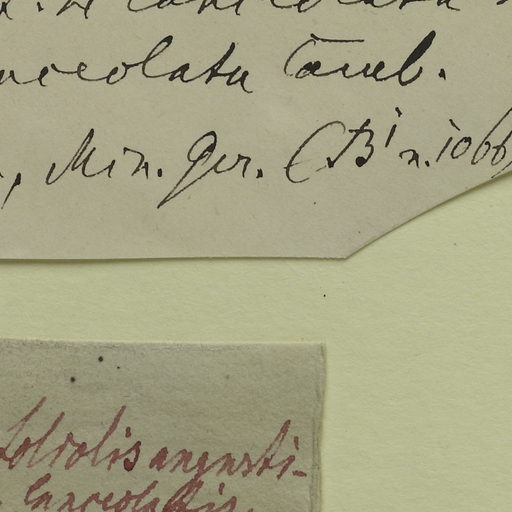 lanceolata Camb.
, Min. Ger. (B' n. 1066
foliolis angusti-
lanceolatis.